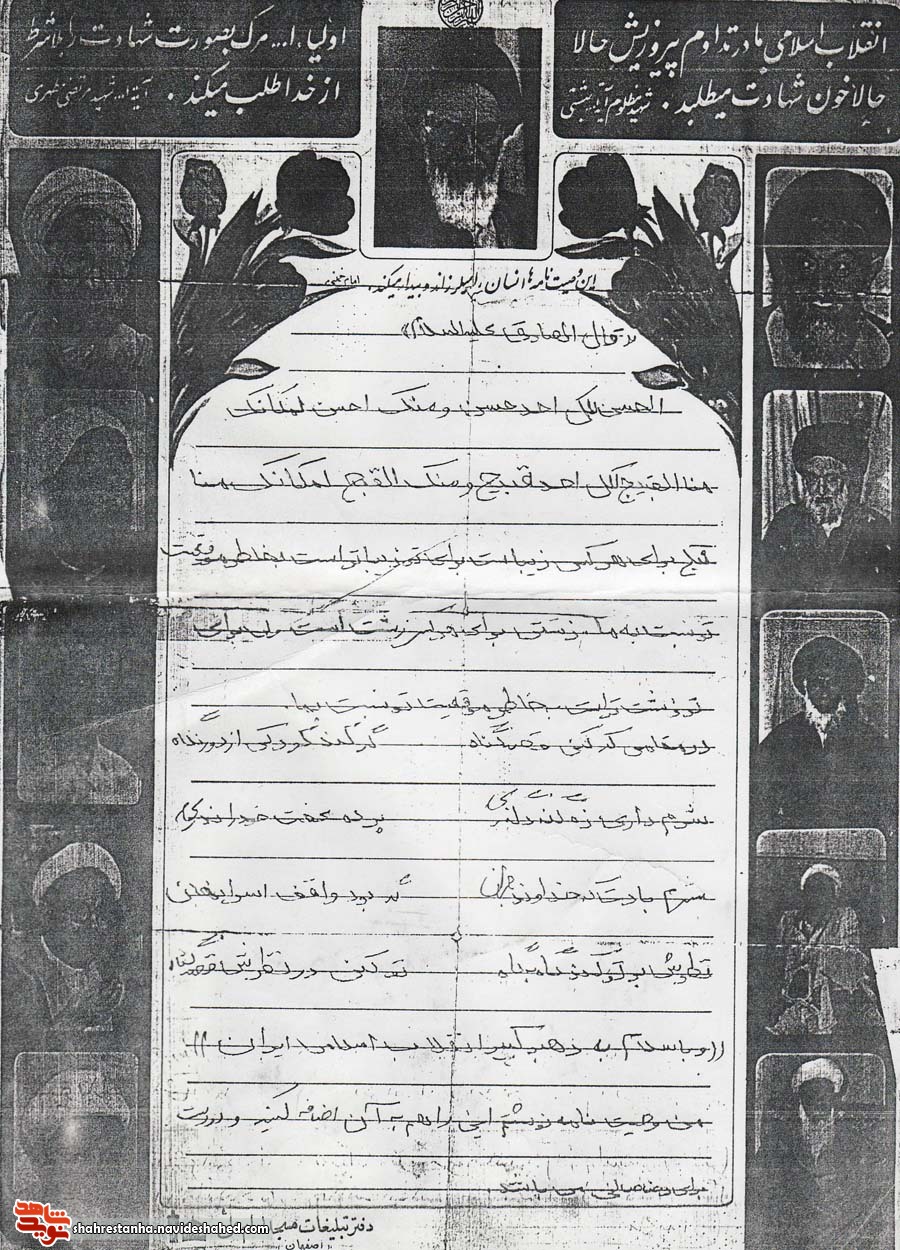 انقلاب اسلامی ما در تداوم پیروزیش حالا
حالا خون شهادت میطلبد . شهید مظلوم آیة... بهشتی
اولیاء ا... مرگ بصورت شهادت را بلا شرط
از خدا طلب میکند . آیة اله شهید مرتضی مطهری
این وصیت نامه ها انسان را میلرزاند و بیدار میکند. امام خمینی
قال الصادق علیه السلام
الحسن لکل احد حسن و منک احسن لمکانک
منا القبیح لکل احد قبیح و منک اقبح لمکانک منا
برای هر کس زیباست برای تو زیباتر است بخاطر موقعیت
تو نسبت به ما زشتی برای هر کس زشت است ولی برای
تو زشت تر است بخاطر موقعیت تو نسبت بما.
در مقامی که کنی قصد گناه گر کند کودکی از دور نگاه
شرم داری ز گنه در گذری پرده عصمت خود را ندری
شرم بادت که خداوند جهان که بود واقف اسرار نهان
بر تو بود گاه به گاه تو کنی در نظرش قصد گناه
((و با سلام به رهبر کبیر انقلاب اسلامی ایران))
من وصیت نامه نوشتم این را هم به آن اضافه کنید و
برای می باشد
دفتر تبلیغات
اصفهان
نوید شاهد
shahrestanha.navideshahed.com